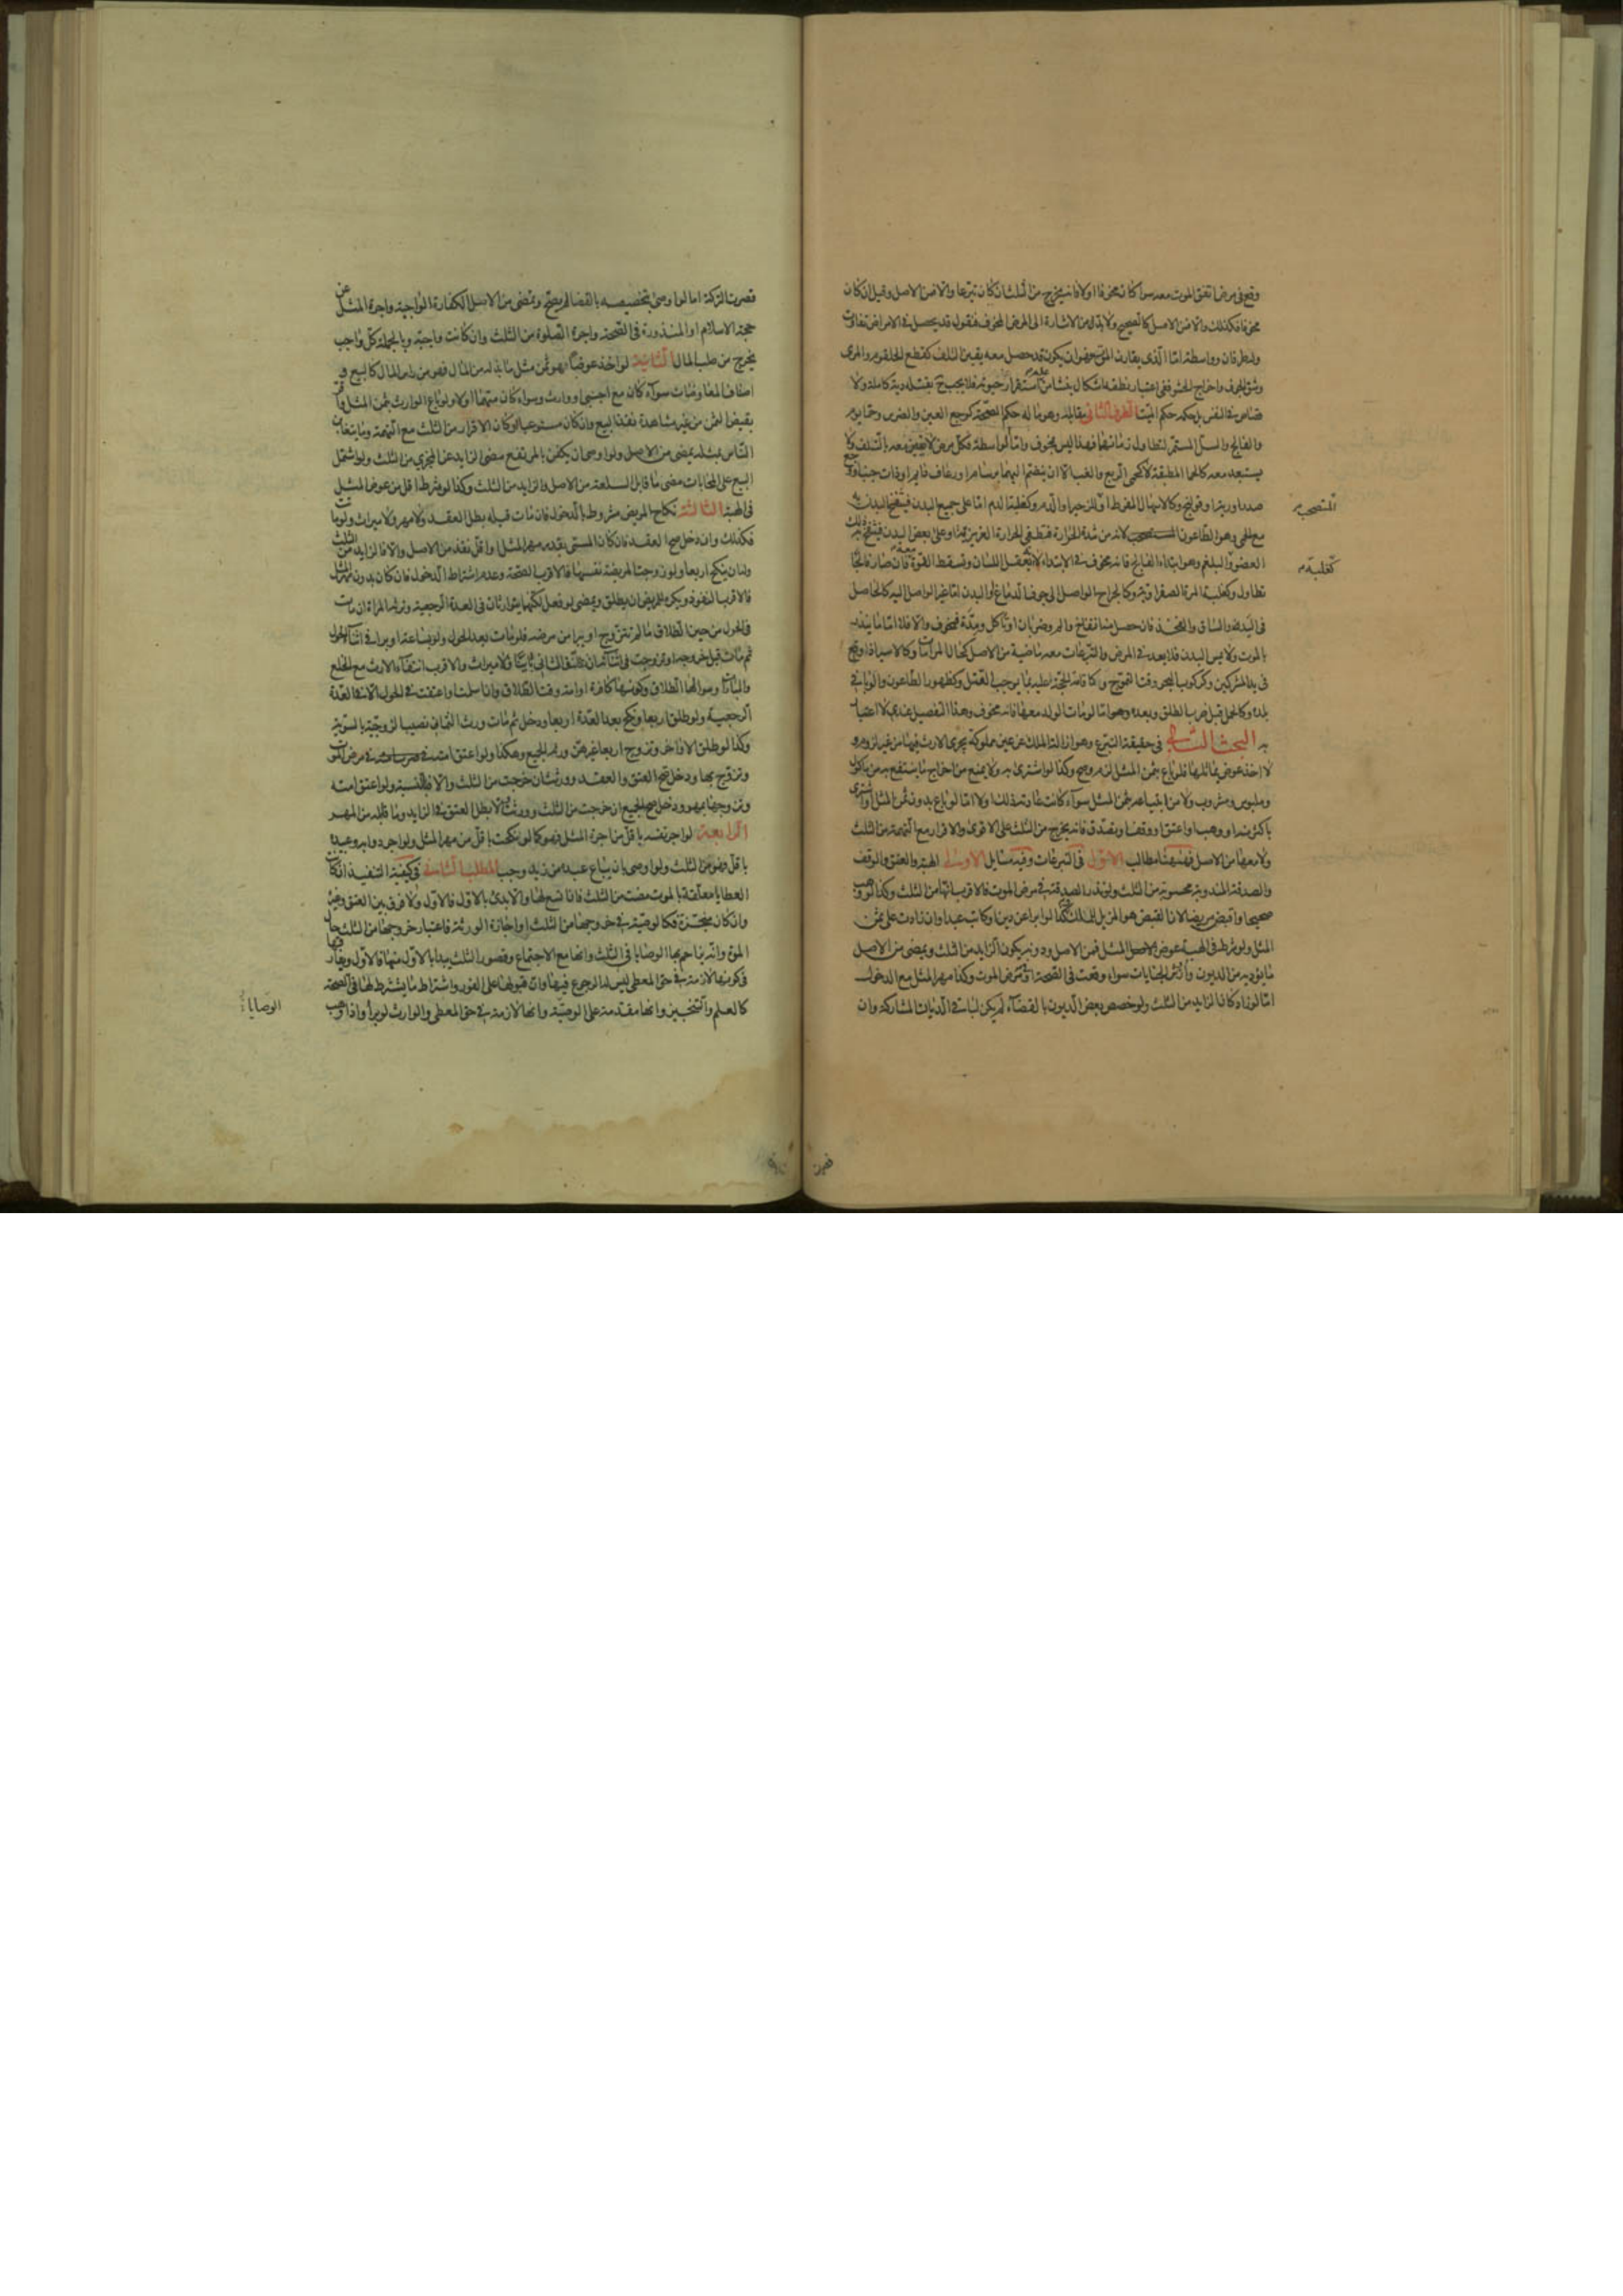 وقع فى مرض اتفق الموت معه سواء كان مخوفا اولا فانه يخرج من الثلث ان كان تبرعا والا فمن الاصل وقيل ان كان
مخوفا فكذلك والا فمن الاصل كالصحيح ولابد من الاشارة الى المرض المخوف فنقول قد يحصل فى الامراض تفاوت
وله طرفان وواسطة اما الذى يقارن الموت فهو ان يكون قد حصل معه يقين التلف كقطع الحلقوم والمرى
وشق الجوف واخراج الحشوة ففى اعتبار نطقه اشكال ينشأ من عدم استقرار حيوته فلا يجب ح بقتله دية كاملة ولا
قصاص فى النفس بل حكمه حكم الميت الطرف الثانى يقابله وهو ما له حكم الصحة كوجع العين والضرس وحمى يوم
والفالج والسل المستمر لتطاول زمانهما فهذا ليس بمخوف واما الواسطة فكل مرض لا يتيقن معه بالتلف ولا
يستبعد معه كالحمى المطبقة لا كحمى الربع والغب الا ان ينضم اليهما برسام او رعاف دايم او ذات جنب او وجع
صدر او رية او قولنج وكالاسهال المفرط او الزحير او الدم وكغلبة الدم اما على جميع البدن فينتفخ البدن به
المستصحب
مع الحمى وهو الطاعون لانه من شدة الحرارة فتطفى الحرارة الغريزية واما على بعض البدن فينتفخ به ذلك
العضو والبلغم وهو ابتداء الفالج فانه مخوف فى الابتداء لانه يعقل اللسان وتسقط معه القوة فان صار فالجا
كغلبة
تطاول وكغلبة المرة الصفراوية وكالجراح الواصل الى جوف الدماغ او البدن اما غير الواصل اليه كالحاصل
فى اليد والساق والفخذ فان حصل منه انتفاخ والم وضربان او تأكل ومدة فمخوف والا فلا اما ما ينذر
بالموت ولا يمس البدن فلا يعد فى المرض والتبرعات معه ماضية من الاصل كحال المرامات وكالاسير اذا وقع
فى يد المشركين وكركوب البحر وقت التموج وكاقامة الحجة عليه بما يوجب القتل وكظهور الطاعون والوبا فى
بلده وكالحمل قبل ضرب الطلق وبعده وهو اما لو مات الولد معها فانه مخوف وهذا التفصيل عندى لا اعتبار
به البحث الثانى فى حقيقة التبرع وهو ازالة الملك عن عين مملوكة يجرى الارث فيها من غير لزوم و
لا اخذ عوض يماثلها فلو باع بثمن المثل لزم وصح وكذا لو اشترى به ولا يمنع من اخراج ما ينتفع به من ماكول
وملبوس ومشروب ولا من ابتياعه بثمن المثل سواء كانت عادته ذلك اولا اما لو باع بدون ثمن المثل او اشترى
باكثر منه او وهب او اعتق او وقف او تصدق فانه يخرج من الثلث على الاقوى والاقرار مع التهمة من الثلث
ولا معها من الاصل فهيهنا مطالب الاول فى التبرعات وفيه مسايل الاولى الهبة والعتق والوقف
والصدقة المندوبة محسوبة من الثلث ولو نذر الصدقة فى مرض الموت فالاقرب انها من الثلث وكذا لو وهب
صحيحا واقبض مريضا لان القبض هو المزيل للملك وكذا لو ابرا عن دين او كاتب عبدا وان زادت على ثمن
المثل ولو شرط فى الهبة عوض المثل فمن الاصل ودونه يكون الزايد من الثلث ويمضى من الاصل
ما يؤديه من الديون وارش الجنايات سواء وقعت فى الصحة او فى مرض الموت وكذا مهر المثل مع الدخول
اما لو زاد كان الزايد من الثلث ولو خصص بعض الديون بالقضاء لم يكن لباقى الديان المشاركة وان
قصرت
قصرت التركة اما لو اوصى بتخصيصه بالقضا لم يصح ويمضى من الاصل الكفارة الواجبة واجرة المثل عن
حجة الاسلام او المنذورة فى الصحة واجرة الصلوة من الثلث وان كانت واجبة وبالجملة كل واجب
يخرج من صلب المال الثانية لو اخذ عوضا هو ثمن مثل ما بذله من المال فهو من راس المال كالبيع و
اصناف المعاوضات سواء كان مع اجنبى او وارث وسواء كان متهما اولا ولو باع الوارث بثمن المثل واقر
بقبض الثمن من غير مشاهدة نفذ البيع وان كان مستوعبا وكان الاقرار من الثلث مع التهمة وما يتغابن
الناس بمثله يمضى من الاصل ولو اوصى ان يكفن بالمرتفع مضى الزايد عن المجزي من الثلث ولو اشتمل
البيع على المحابات مضى ما قابل السلعة من الاصل والزايد من الثلث وكذا لو شرط اقل من عوض المثل
فى الهبة الثالثة نكاح المريض مشروط بالدخول فان مات قبله بطل العقد ولا مهر ولا ميراث ولو ماتت
فكذلك وان دخل صح العقد فان كان المسمى بقدر مهر المثل او اقل نفذ من الاصل والا فالزايد من الثلث
وله ان ينكح اربعا ولو زوجت المريضة نفسها فالاقرب الصحة وعدم اشتراط الدخول فان كان بدون مهر المثل
فالاقرب النفوذ ويكره للمريض ان يطلق ويمضى لو فعل لكنهما يتوارثان فى العدة الرجعية وترثه المراة ان مات
فى الحول من حين الطلاق ما لم تتزوج او يبرا من مرضه فلو مات بعد الحول ولو بساعة او برا فى اثناء الحول
ثم مات قبل خروجه او تزوجت فى اثنائه وان طلقها الثانى باينا فلا ميراث والاقرب انتفاء الارث مع الخلع
والمباراة وسوالها الطلاق وكونها كافرة او امة وقت الطلاق وان اسلمت واعتقت فى الحول الا فى العدة
الرجعية ولو طلق اربعا ونكح بعد العدة اربعا ودخل ثم مات ورث الثمان نصيب الزوجية بالسوية
وكذا لو طلق الاواخر وتزوج اربعا غيرهن ورثه الجميع وهكذا ولو اعتق امته فى مرض الموت
وتزوج بها ودخل صح العتق والعقد وورثت ان خرجت من الثلث والا فبالنسبة ولو اعتق امته
وتزوجها بمهر ودخل صح الجميع ان خرجت من الثلث وورثت والا بطل العتق فى الزايد وما قابله من المهر
الرابعة لو اجر نفسه باقل من اجرة المثل فهو كما لو نكحت باقل من مهر المثل ولو اجر دوابه وعبيده
باقل فهو من الثلث ولو اوصى بان يباع عبده من زيد وجب المطلب الثانى فى كيفية التنفيذ ان كانت
العطايا معلقة بالموت مضت من الثلث فان اتسع لها والا بدئ بالاول فالاول ولا فرق بين العتق وغيره
وان كان منجزة فكالوصية فى خروجها من الثلث او اجازة الورثة فاعتبار خروجها من الثلث حال
الموت وانه يزاحم بها الوصايا فى الثلث وانها مع الاجتماع وقصور الثلث يبدا بالاول منها فالاول ويفارقها
فى كونها لازمة فى حق المعطى ليس له الرجوع فيها وان قبولها على الفور واشتراط ما يشترط لها فى الصحة
كالعلم والتنجيز وانها مقدمة على الوصية وانها لازمة فى حق المعطى والوارث لو برا واذا وهب
الوصايا